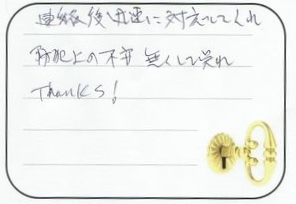 連絡後、迅速に対応してくれ
防犯上の不安 無くして呉れ
Thanks!